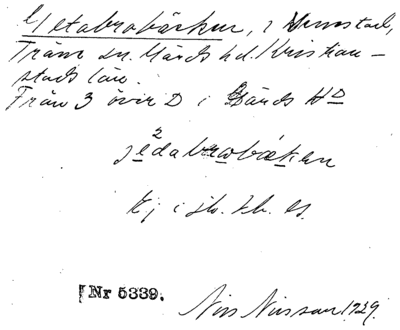 Getabrobäcken, i Ynnestad,
Träne sn. Gärds hd. Kristian-
stads län.
Från 3 över D i Gärds HD
2
jedabrobæken
Ej i jb. s.
Nr 5339.
Nils Nilsson 1929.